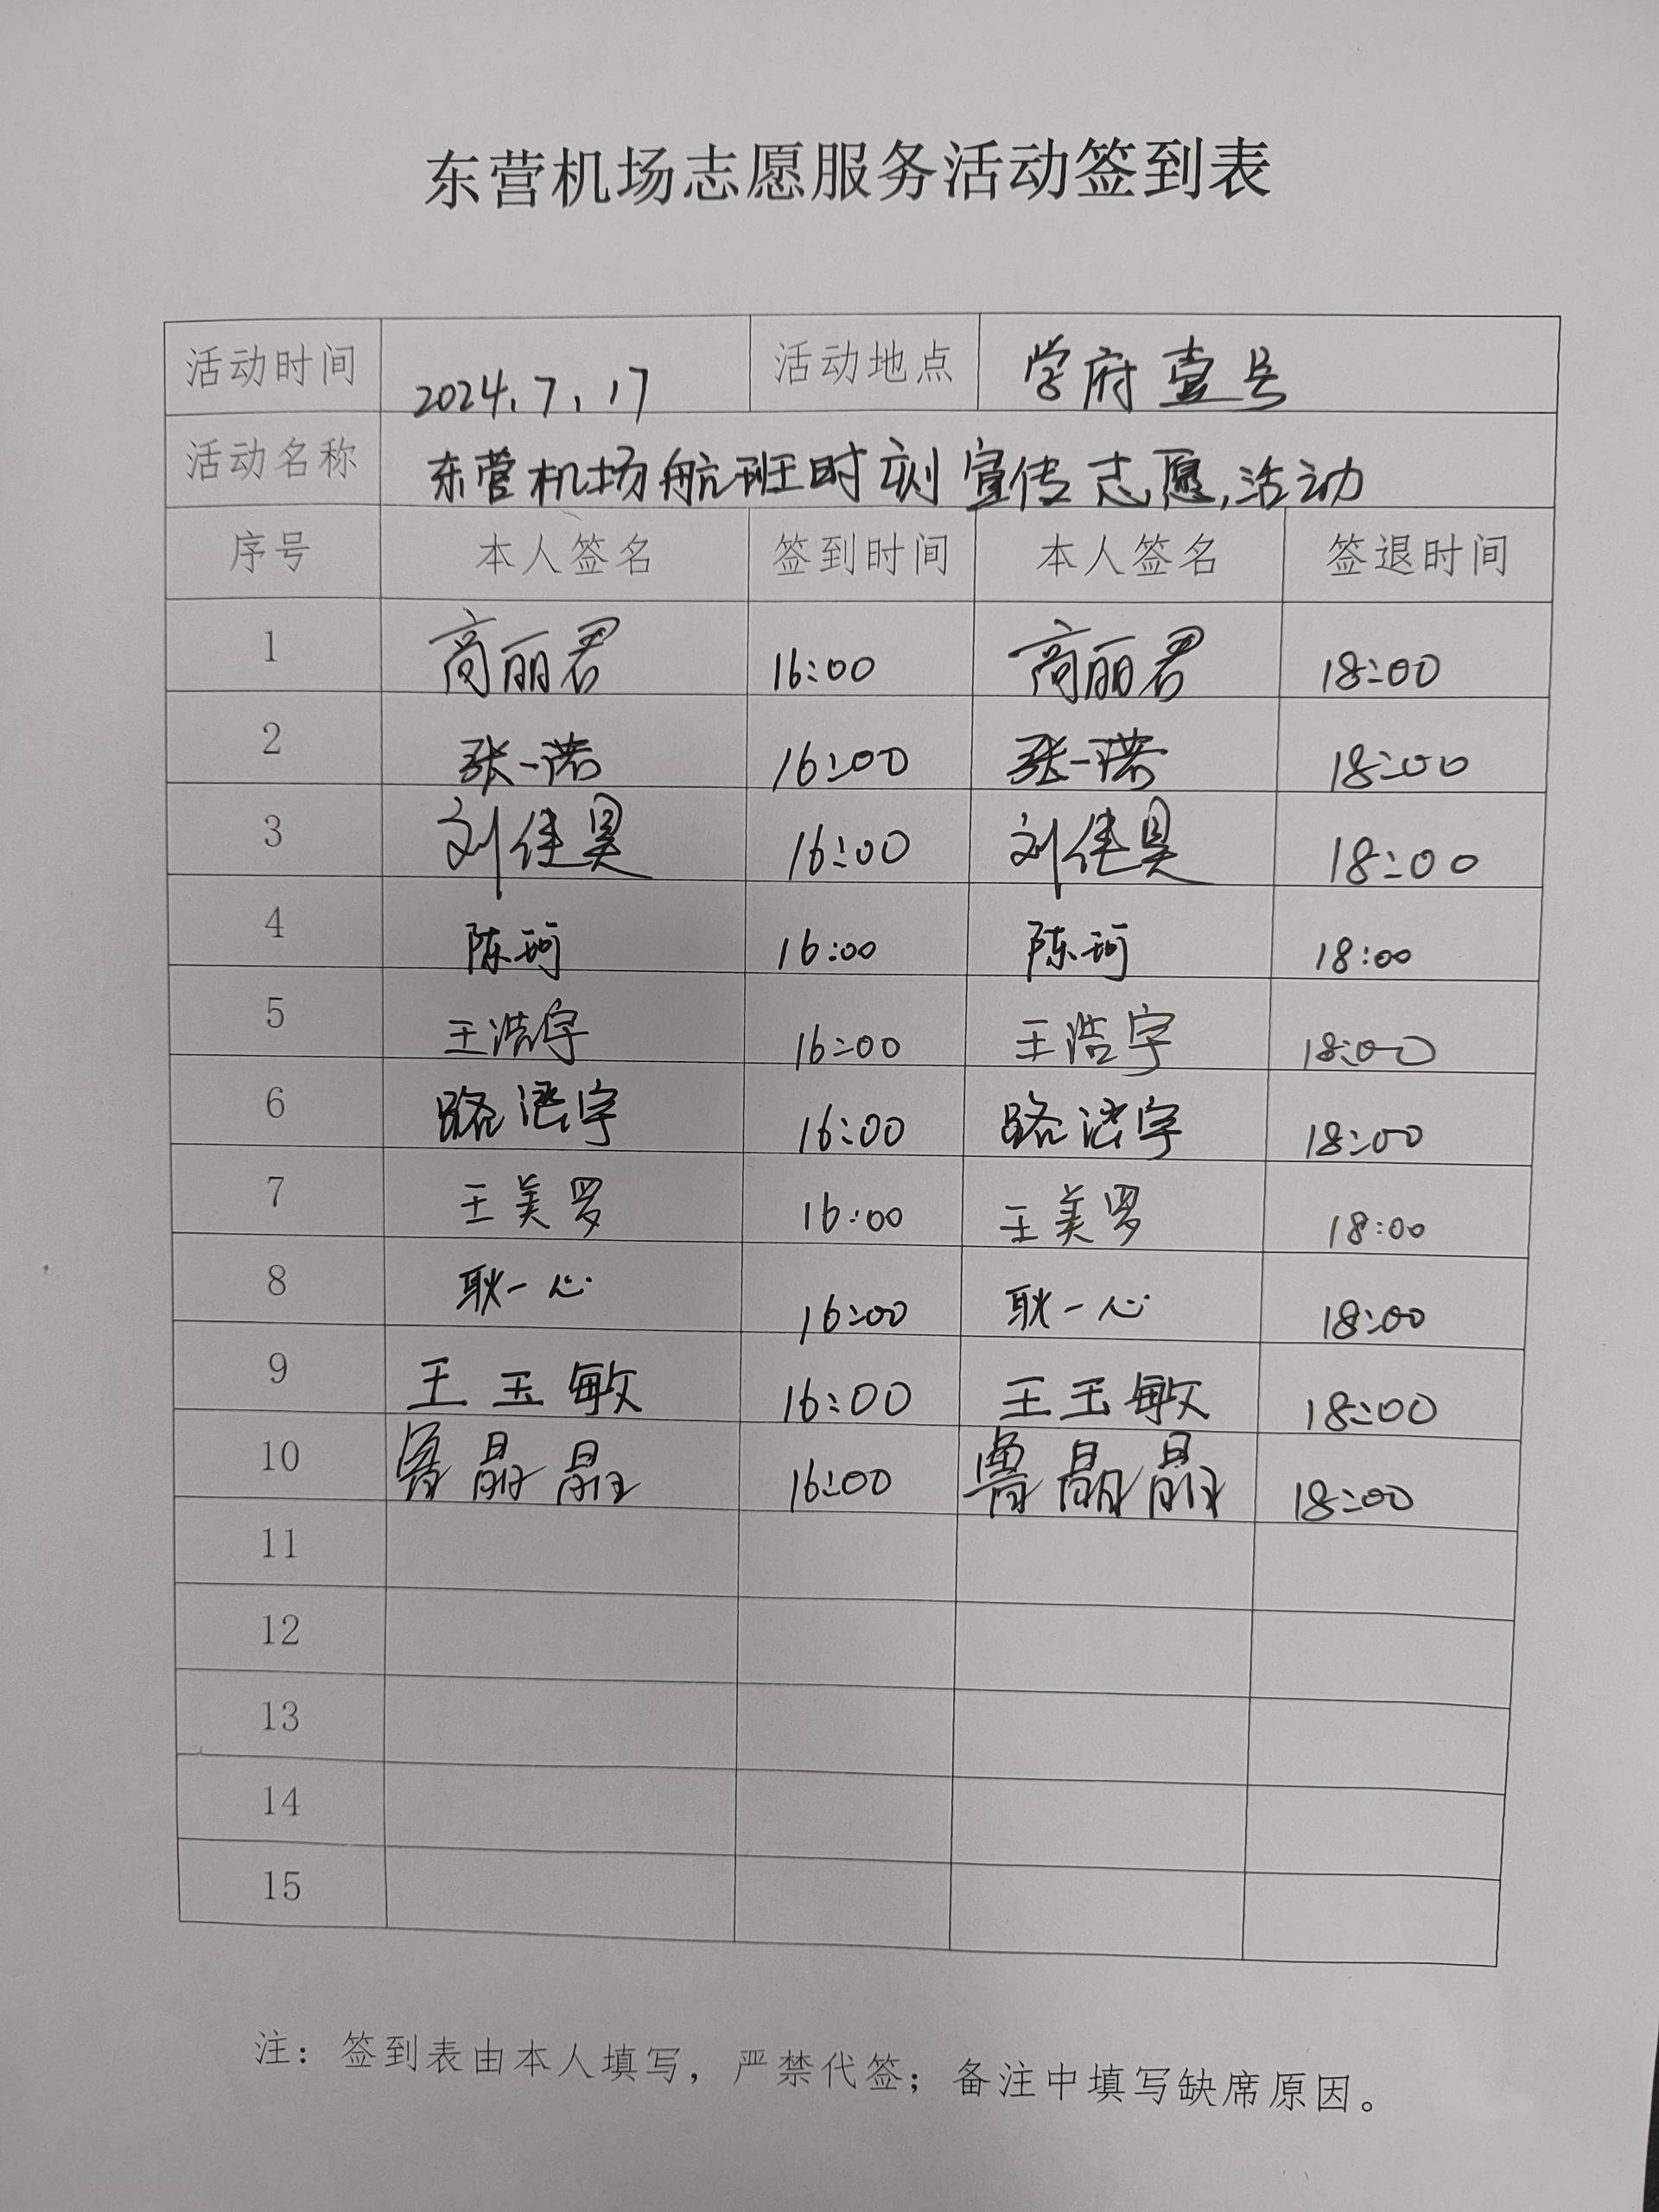 东营机场志愿服务活动签到表
活动时间 2024.7.17 活动地点 学府壹号
活动名称 东营机场航班时刻宣传志愿活动
序号 本人签名 签到时间 本人签名 签退时间
1 高丽君 16:00 高丽君 18:00
2 张一诺 16:00 张一诺 18:00
3 刘佳昊 16:00 刘佳昊 18:00
4 陈珂 16:00 陈珂 18:00
5 王浩宇 16:00 王浩宇 18:00
6 路浩宇 16:00 路浩宇 18:00
7 王美罗 16:00 王美罗 18:00
8 耿一心 16:00 耿一心 18:00
9 王玉敏 16:00 王玉敏 18:00
10 鲁晶晶 16:00 鲁晶晶 18:00
11
12
13
14
15
注：签到表由本人填写，严禁代签；备注中填写缺席原因。